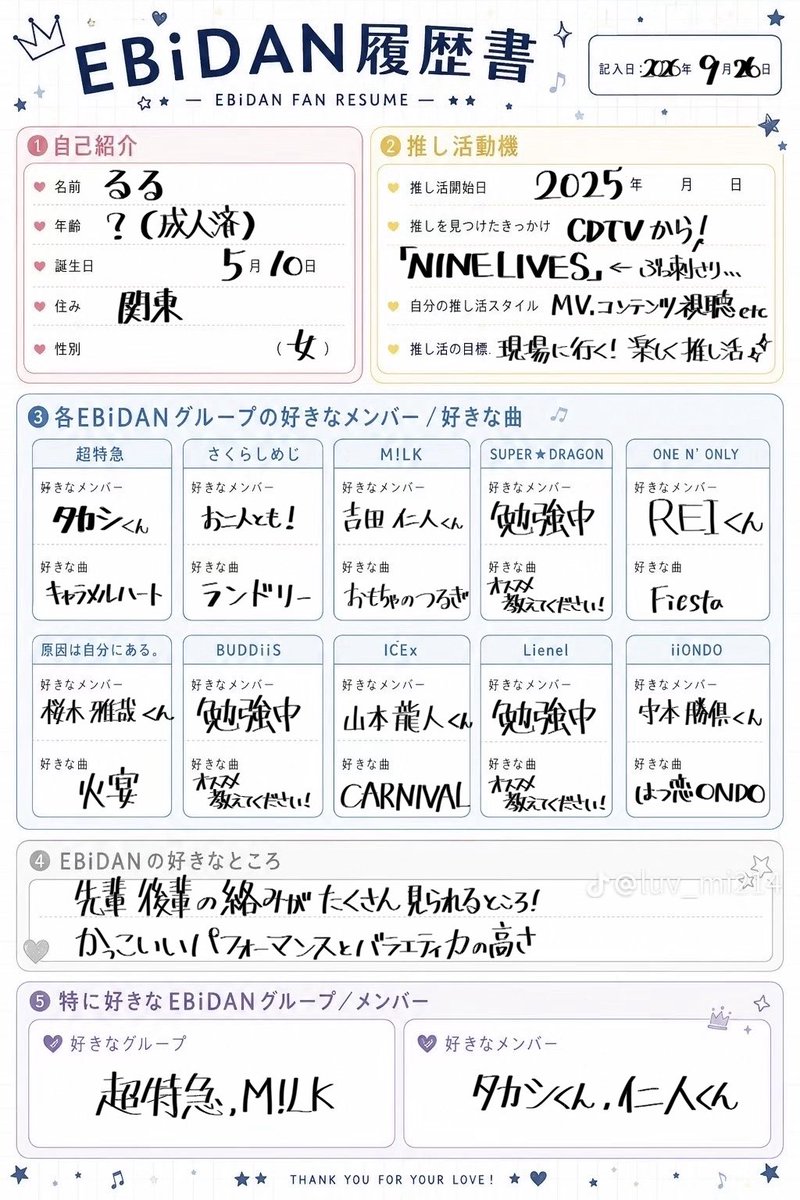 EBiDAN履歴書
— EBiDAN FAN RESUME —
記入日:2026年 9月26日
1 自己紹介
名前 るる
年齢 ?(成人済)
誕生日 5月10日
住み 関東
性別 (女)
2 推し活動機
推し活開始日 2025年 月 日
推しを見つけたきっかけ CDTVから!
「NINE LIVES」←ぶっ刺さり...
自分の推し活スタイル MV.コンテンツ視聴etc
推し活の目標. 現場に行く! 楽しく推し活
3 各EBiDANグループの好きなメンバー/好きな曲
超特急
好きなメンバー
タカシくん
好きな曲
キャラメルハート
さくらしめじ
好きなメンバー
お二人とも!
好きな曲
ランドリー
M!LK
好きなメンバー
吉田 仁人くん
好きな曲
おもちゃのつるぎ
SUPER★DRAGON
好きなメンバー
勉強中
好きな曲
オススメ
教えてください!
ONE N' ONLY
好きなメンバー
REIくん
好きな曲
Fiesta
原因は自分にある。
好きなメンバー
桜木 雅哉くん
好きな曲
火宴
BUDDiiS
好きなメンバー
勉強中
好きな曲
オススメ
教えてください!
ICEx
好きなメンバー
山本 龍人くん
好きな曲
CARNIVAL
Lienel
好きなメンバー
勉強中
好きな曲
オススメ
教えてください!
iiONDO
好きなメンバー
守本 勝倶くん
好きな曲
はつ恋ONDO
4 EBiDANの好きなところ
先輩 後輩の絡みがたくさん見られるところ!
かっこいいパフォーマンスとバラエティ力の高さ
@luv_mi214
5 特に好きなEBiDANグループ/メンバー
好きなグループ
超特急,M!LK
好きなメンバー
タカシくん,仁人くん
THANK YOU FOR YOUR LOVE!